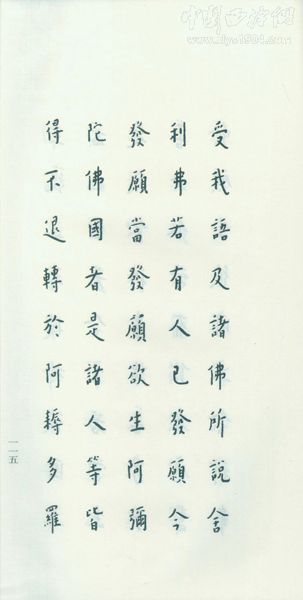 受我語及諸佛所說舍
利弗若有人已發願今
發願當發願欲生阿彌
陀佛國者是諸人等皆
得不退轉於阿耨多羅
一一五
中国西泠网
www.xlys1904.com